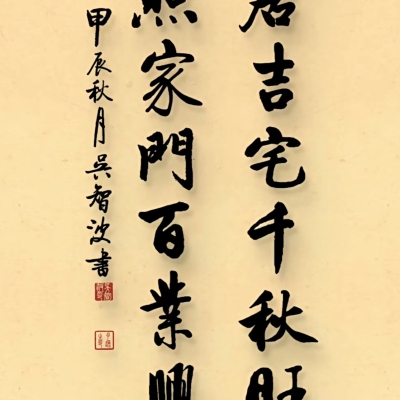 居吉宅千秋旺
照家門百業興
甲辰秋月吳智波書